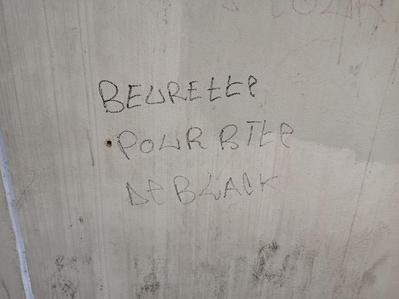 BEURETTE
POUR BITE
DE BLACK